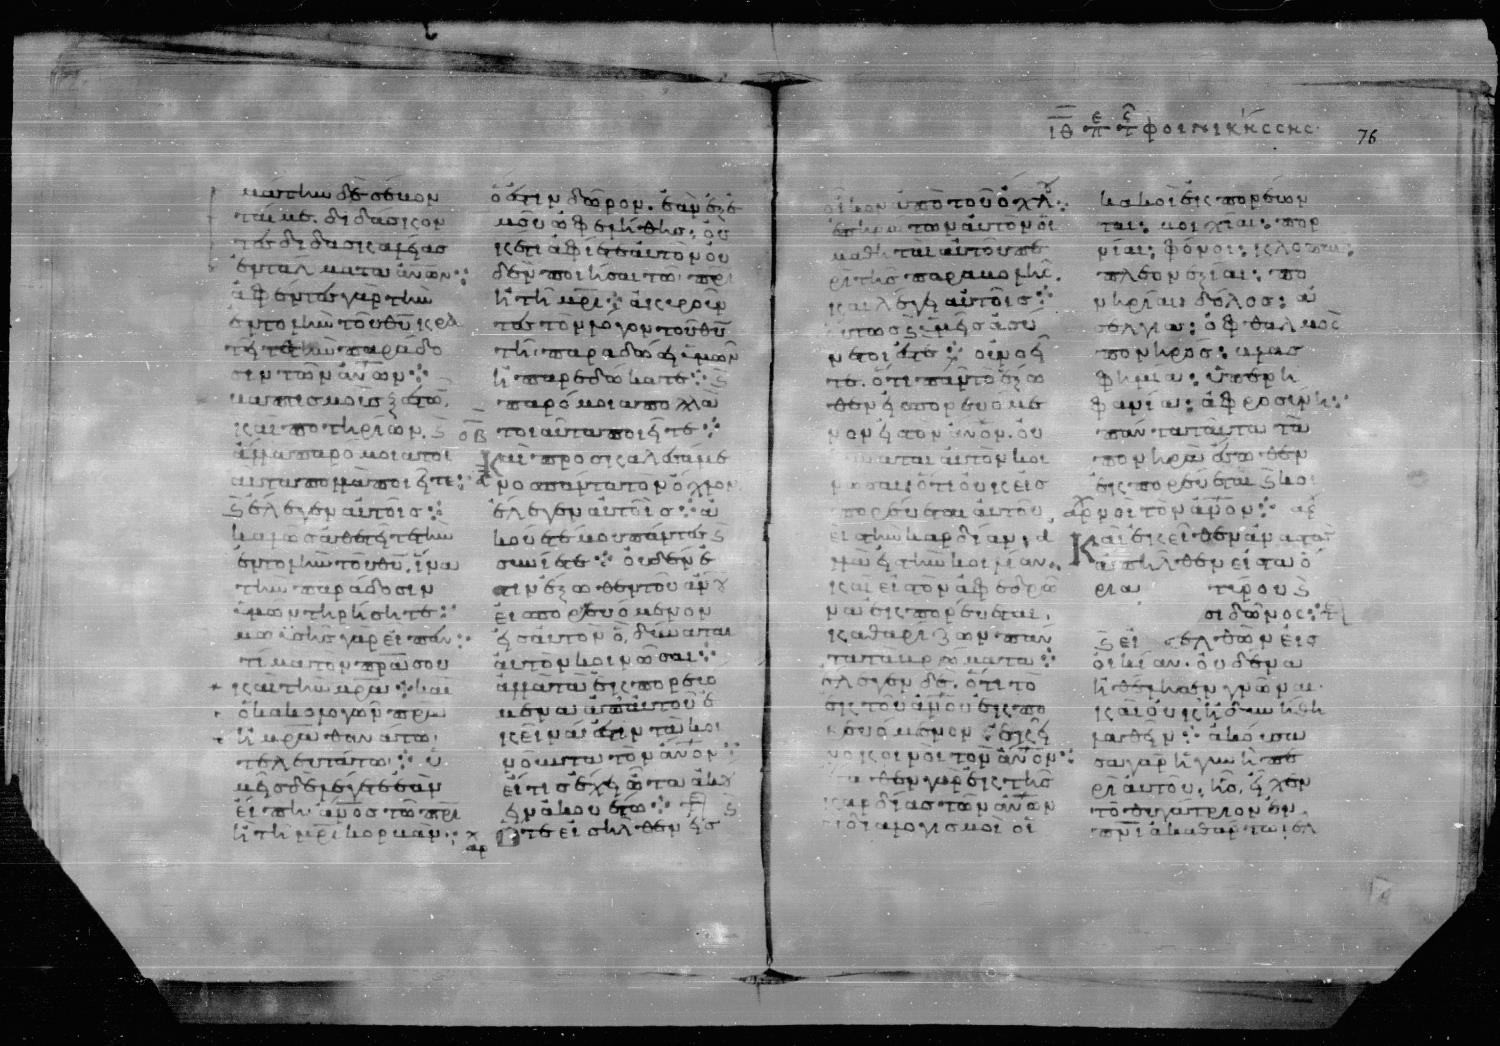 μάτην δὲ σέβον
ται με. διδάσκον
τες διδασκαλίας
ἐντάλματα ἀνων:
ἀφέντες γὰρ τὴν
ἐντολὴν τοῦ θυ κρα
τεῖτε τὴν παράδο
σιν τῶν ἀνων:
βαπτισμοὺς ξεστῶν
καὶ ποτηρίων. καὶ
ἄλλα παρόμοια τοι
αῦτα πολλὰ ποιεῖτε:
καὶ ἔλεγεν αὐτοῖς:
καλῶς ἀθετεῖτε τὴν
ἐντολὴν τοῦ θυ, ἵνα
τὴν παράδοσιν
ὑμῶν τηρήσητε:
μωσῆς γὰρ εἶπεν:
τίμα τὸν πρα σου
καὶ τὴν μρα: καὶ
ὁ κακολογῶν πρα
ἢ μρα θανάτω
τελευτάτω: ὑ
μεῖς δὲ λέγετε ἐὰν
εἴπη ἀνος τῶ πρι
ἢ τῆ μρι κορβᾶν:
ὅ ἐστιν δῶρον. ἐὰν ἐξ ἐ
μοῦ ὠφεληθῆς: οὐ
κέτι ἀφίετε αὐτὸν οὐ
δὲν ποιῆσαι τῶ πρι
ἢ τῆ μρι: ἀκυροῦν
τες τὸν λόγον τοῦ θυ
τῆ παραδόσει ὑμῶν
ἧ παρεδώκατε: καὶ
παρόμοια πολλὰ
τοιαῦτα ποιεῖτε:
οβ
Καὶ προσκαλεσάμε
νος πάντα τὸν ὄχλον
ἔλεγεν αὐτοῖς: ἀ
κούετέ μου πάντες καὶ
συνίετε: οὐδέν ἐ
στιν ἔξωθεν τοῦ ἀνου
εἰσπορευόμενον
εἰς αὐτὸν ὃ δύναται
αὐτὸν κοινῶσαι:
ἀλλὰ τὰ ἐκπορευό
μενα ἀπ' αὐτοῦ ἐ
κεῖνά ἐστιν τὰ κοι
νοῦντα τὸν ἀνον:
εἴ τις ἔχει ὦτα ἀκού
ειν ἀκουέτω: καὶ
Ὅτε εἰσῆλθεν εἰς
αρχ
ιθ επ στ φοινικήσσης
76
οἶκον ἀπὸ τοῦ ὄχλου:
ἐπηρώτων αὐτὸν οἱ
μαθηταὶ αὐτοῦ πε
ρὶ τῆς παραβολῆς.
καὶ λέγει αὐτοῖς:
οὕτως καὶ ὑμεῖς ἀσύ
νετοί ἐστε: οὐ νοεῖ
τε. ὅτι πᾶν τὸ ἔξω
θεν εἰσπορευόμε
νον εἰς τὸν ἀνον. οὐ
δύναται αὐτὸν κοι
νῶσαι: ὅτι οὐκ εἰσ
πορεύεται αὐτοῦ
εἰς τὴν καρδίαν, ἀλ
λὰ εἰς τὴν κοιλίαν.
καὶ εἰς τὸν ἀφεδρῶ
να ἐκπορεύεται.
καθαρίζων πάν
τα τὰ βρώματα:
ἔλεγεν δὲ. ὅτι τὸ
ἐκ τοῦ ἀνου ἐκπο
ρευόμενον ἐκεῖ
νο κοινοῖ τὸν ἀνον:
ἔσωθεν γὰρ ἐκ τῆς
καρδίας τῶν ἀνων
οἱ διαλογισμοὶ οἱ
κακοὶ ἐκπορεύον
ται: μοιχεῖαι: πορ
νεῖαι: φόνοι: κλοπαί:
πλεονεξίαι: πο
νηρίαι: δόλος: ἀ
σέλγεια: ὀφθαλμὸς
πονηρός: βλασ
φημία: ὑπερη
φανία: ἀφροσύνη:
πάντα ταῦτα τὰ
πονηρὰ ἔσωθεν
ἐκπορεύεται καὶ κοι
νοῖ τὸν ἀνον:
Καὶ ἐκεῖθεν ἀναστὰς
ἀπῆλθεν εἰς τὰ ὅ
ρια τύρου καὶ
σιδῶνος:
καὶ εἰσελθὼν εἰς
οἰκίαν. οὐδένα
ἤθελησεν γνῶναι.
καὶ οὐκ ἠδυνήθη
λαθεῖν: ἀκούσα
σα γὰρ ἡ γυνὴ πε
ρὶ αὐτοῦ, ἧς εἶχεν
τὸ θυγάτριον ἐν
πνι ἀκαθάρτω, ἐλ